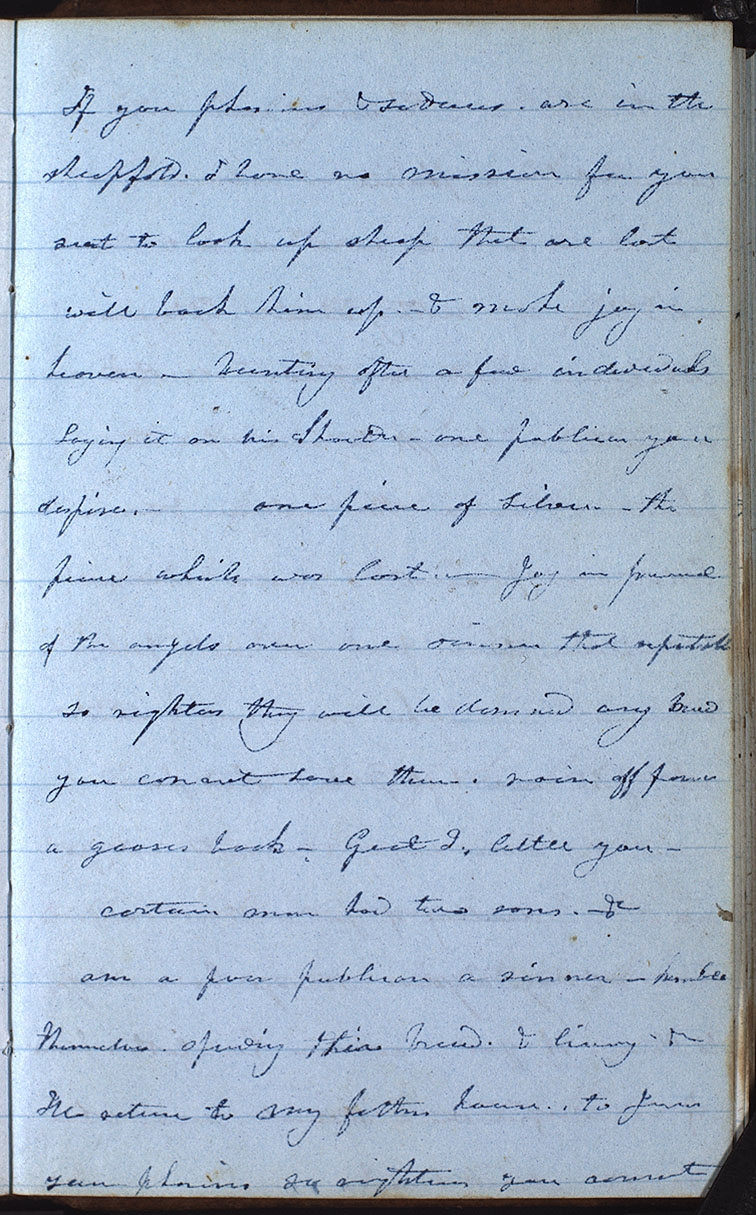 If you are in the
sheepfold. I have no mission for you
sent to look up sheep that are lost
will back him up. - & make joy in
heaven - hunting after a few individuals
Laying it on his Shoulder - one publican you
despise. - one piece of silver - the
piece which was lost. - Joy in
of the angels over one sinner that
so they will be damned any
you cannot have them. off from
a gooses back - Great I, little you -
certain man had two sons. - &c
am a poor publican a sinner - humble
themselves. & living &c
return to my fathers house. to
you you cannot